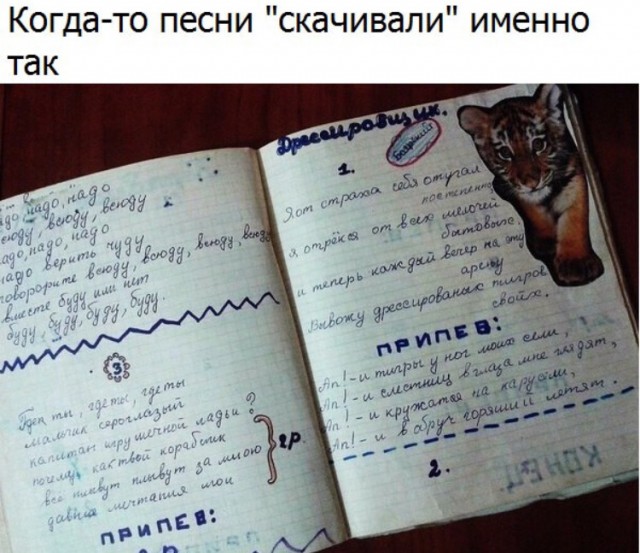 Когда-то песни "скачивали" именно
так
надо, надо
всюду, всюду
надо, надо, надо
надо верить чуду
всюду, всюду, всюду
вместе буду или нет
буду, буду, буду, буду.
3
где ты, где ты
мальчик сероглазый
капитан игрушечной ладьи?
почему, как твой кораблик
всё плывут за мною
давние мечтания мои
2р.
ПРИПЕВ:
Дрессировщик.
Боярский
1.
Я от страха себя отучал
постепенно
я отрёкся от всех мелочей
бытовых,
и теперь каждый вечер на эту
арену
Вывожу дрессированых тигров
своих.
ПРИПЕВ:
Ап! - и тигры у ног моих сели,
Ап! - и с лестниц в глаза мне глядят,
Ап! - и кружатся на карусели,
Ап! - и в обруч горящий летят.
2.